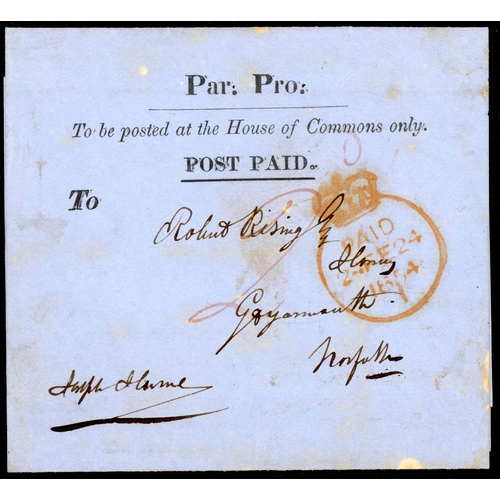 Par: Pro:
To be posted at the House of Commons only.
POST PAID.
To
Robert Rising Esq
Horsey
Gt Yarmouth
Norfolk
Joseph Hume
PAID
24
1854